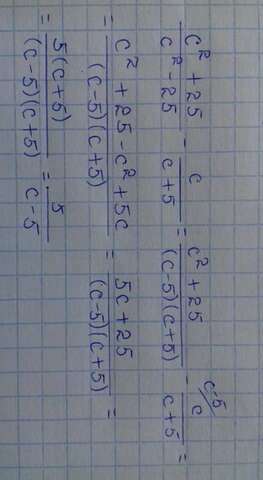 (c² + 25)/(c² - 25) - c/(c + 5) = (c² + 25)/((c - 5)(c + 5)) - c^(c-5)/(c + 5) =
= (c² + 25 - c² + 5c)/((c - 5)(c + 5)) = (5c + 25)/((c - 5)(c + 5)) =
= 5(c + 5)/((c - 5)(c + 5)) = 5/(c - 5)